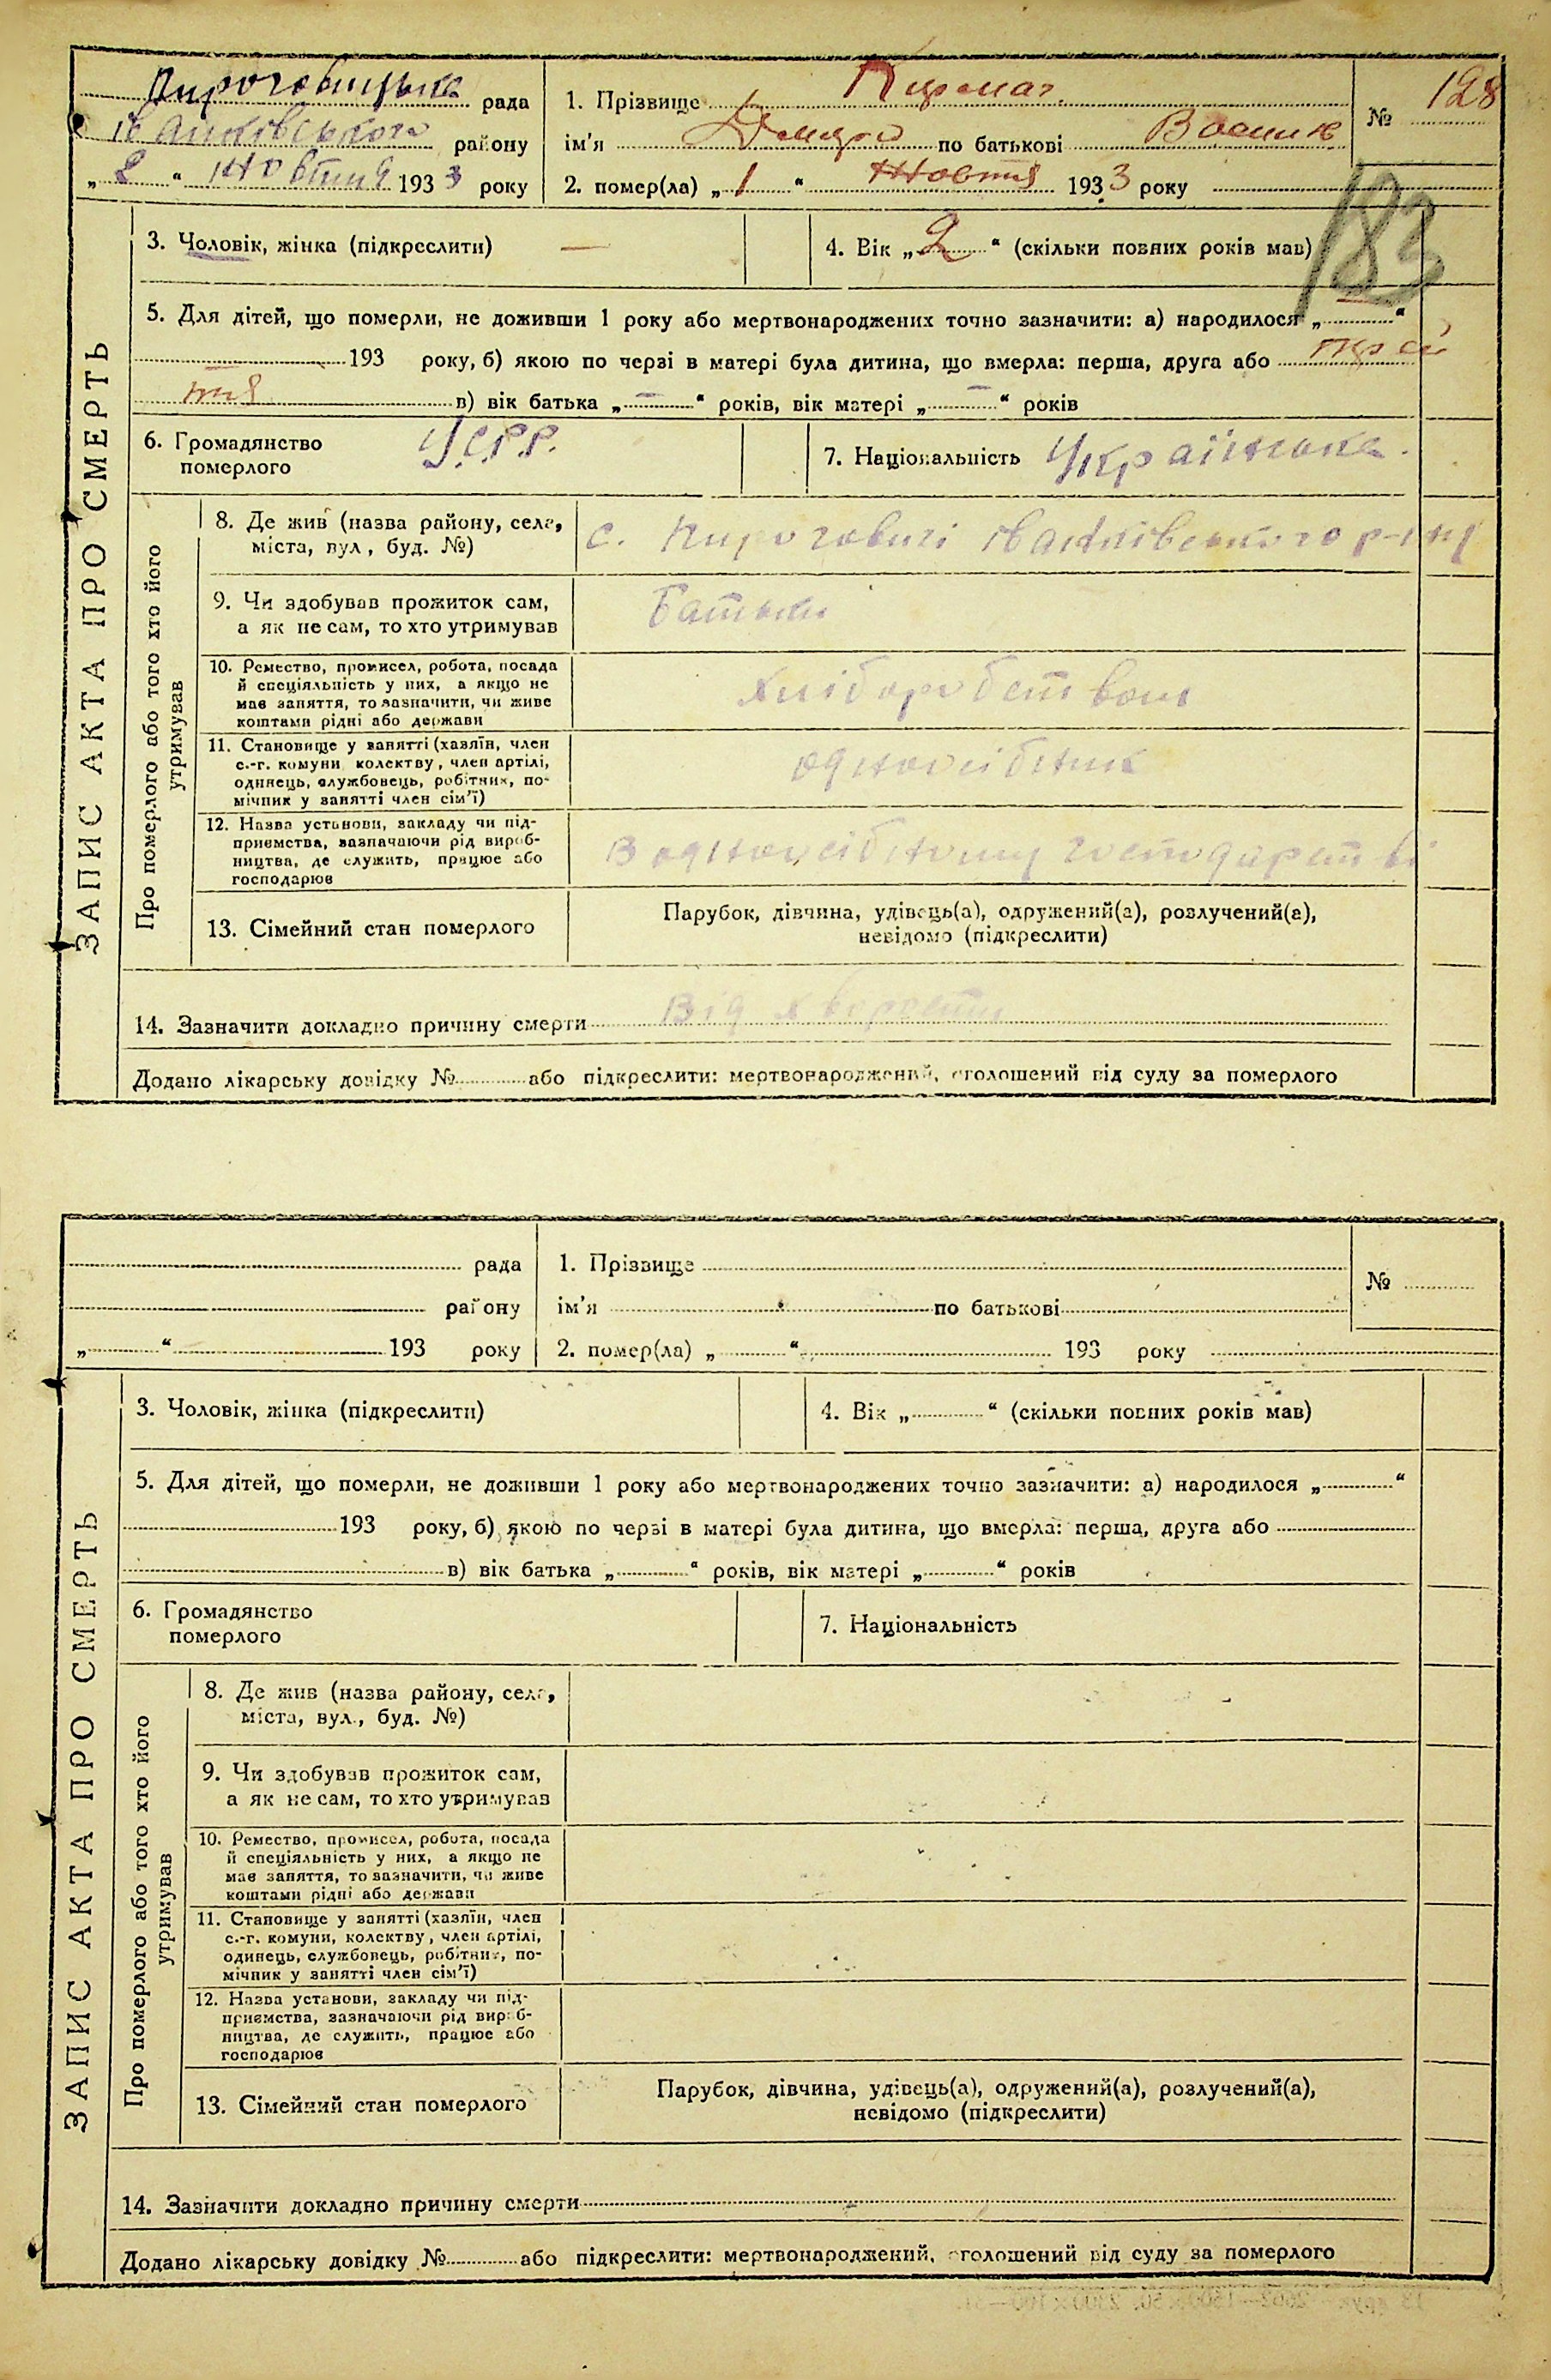 Пироговицька рада
Іванківського району
„ 2 “ Жовтня 1933 року
1. Прізвище
№ 128
ім'я Дмитро по батькові
2. помер(ла) „ 1 “ Жовтня 1933 року
183
ЗАПИС АКТА ПРО СМЕРТЬ
3. Чоловік, жінка (підкреслити) —
4. Вік „ 2 “ (скільки повних років мав)
5. Для дітей, що померли, не доживши 1 року або мертвонароджених точно зазначити: а) народилося „ — “
193 року, б) якою по черзі в матері була дитина, що вмерла: перша, друга або трей
тя в) вік батька „ — “ років, вік матері „ — “ років
6. Громадянство
померлого
У.С.Р.Р.
7. Національність Українська.
Про померлого або того хто його
утримував
8. Де жив (назва району, села,
міста, вул., буд. №)
с. Пироговичі Іванківського р-ну
9. Чи здобував прожиток сам,
а як не сам, то хто утримував
Батьки
10. Ремество, промисел, робота, посада
й спеціяльність у них, а якщо не
має заняття, то зазначити, чи живе
коштами рідні або держави
Хліборобством
11. Становище у занятті (хазяїн, член
с.-г. комуни, колектву, член артілі,
одинець, службовець, робітник, по-
мічник у занятті член сім'ї)
одноосібник
12. Назва установи, закладу чи під-
приємства, зазначаючи рід вироб-
ництва, де служить, працює або
господарює
В одноосібному господарстві
13. Сімейний стан померлого
Парубок, дівчина, удівець(а), одружений(а), розлучений(а),
невідомо (підкреслити)
14. Зазначити докладно причину смерти Від хворости
Додано лікарську довідку № або підкреслити: мертвонароджений, оголошений від суду за померлого
рада
району
„ “ 193 року
1. Прізвище
№
ім'я по батькові
2. помер(ла) „ “ 193 року
ЗАПИС АКТА ПРО СМЕРТЬ
3. Чоловік, жінка (підкреслити)
4. Вік „ “ (скільки повних років мав)
5. Для дітей, що померли, не доживши 1 року або мертвонароджених точно зазначити: а) народилося „ “
193 року, б) якою по черзі в матері була дитина, що вмерла: перша, друга або
в) вік батька „ “ років, вік матері „ “ років
6. Громадянство
померлого
7. Національність
Про померлого або того хто його
утримував
8. Де жив (назва району, села,
міста, вул., буд. №)
9. Чи здобував прожиток сам,
а як не сам, то хто утримував
10. Ремество, промисел, робота, посада
й спеціяльність у них, а якщо не
має заняття, то зазначити, чи живе
коштами рідні або держави
11. Становище у занятті (хазяїн, член
с.-г. комуни, колектву, член артілі,
одинець, службовець, робітник, по-
мічник у занятті член сім'ї)
12. Назва установи, закладу чи під-
приємства, зазначаючи рід вироб-
ництва, де служить, працює або
господарює
13. Сімейний стан померлого
Парубок, дівчина, удівець(а), одружений(а), розлучений(а),
невідомо (підкреслити)
14. Зазначити докладно причину смерти
Додано лікарську довідку № або підкреслити: мертвонароджений, оголошений від суду за померлого